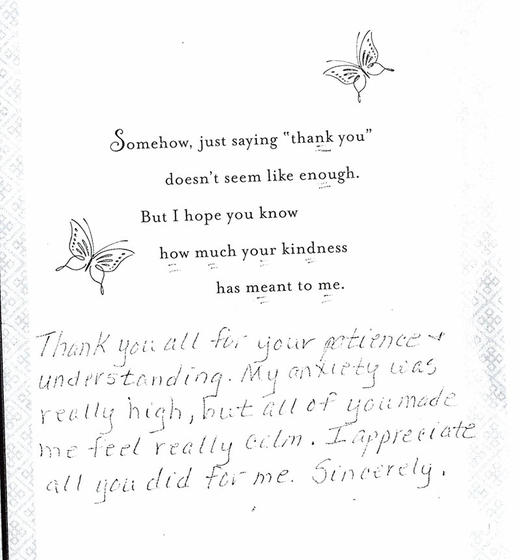 Somehow, just saying "thank you"
doesn't seem like enough.
But I hope you know
how much your kindness
has meant to me.
Thank you all for your patience +
understanding. My anxiety was
really high, but all of you made
me feel really calm. I appreciate
all you did for me. Sincerely.